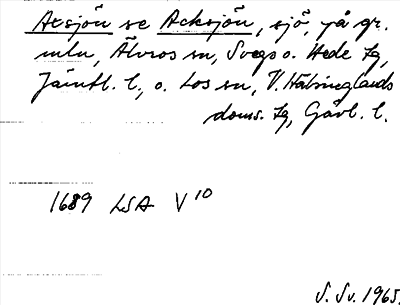 Axsjön se Acksjön, sjö, på gr.
mln, Älvros sn, Svegs o. Hede tg,
Jämtl. l., o. Los sn, V. Hälsinglands
doms. tg, Gävl. l.
1689 LSA V 10
S. Sv. 1965.